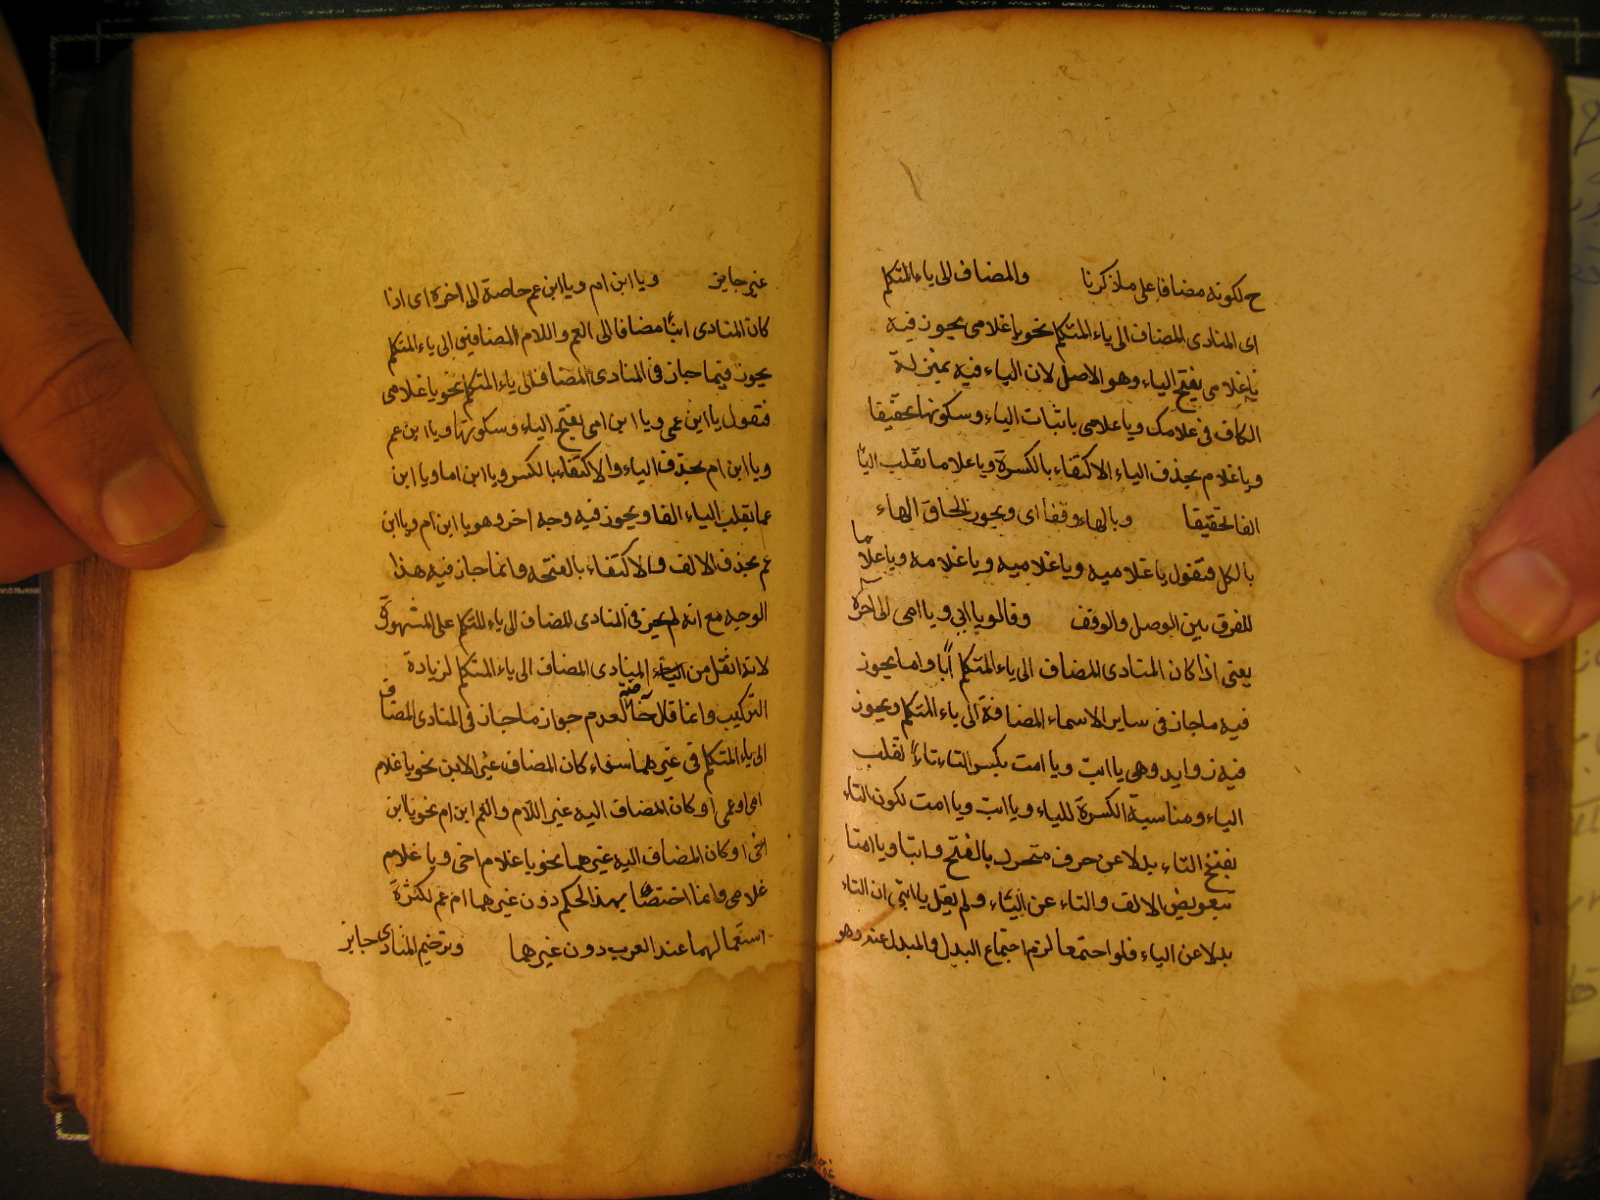 ح لكونه مضافا على ما ذكرنا والمضاف الى ياء المتكلم
اى المنادى المضاف الى ياء المتكلم نحو يا غلامى يجوز فيه
يا غلامى بفتح الياء وهو الاصل لان الياء فيه بمنزلة
الكاف فى غلامك ويا غلامى باثبات الياء وسكونها تخفيفا
ويا غلام بحذف الياء الاكتفاء بالكسرة ويا غلاما بقلب اليا
الفا تخفيفا وبالهاء وقفا اى ويجوز الحاق الهاء
بالكل فتقول يا غلاميه ويا غلاميه ويا غلامه ويا غلاما
للفرق بين الوصل والوقف وقالو يا ابى ويا امى الى اخره
يعنى اذا كان المنادى المضاف الى ياء المتكلم ابا واما يجوز
فيه ما جاز فى ساير الاسماء المضافة الى ياء المتكلم ويجوز
فيه زوايد وهى يا ابت ويا امت بكسر التاء تاء لقلب
الياء ومناسبة الكسرة للياء ويا ابت ويا امت لكون التاء
بفتح التاء بدلا عن حرف متحرد بالفتح وابتا ويا امتا
بتعويض الالف والتاء عن الياء ولم يقل يا ابتى ان التاء
بدلا عن الياء فلو اجتمعا لزم اجتماع البدل والمبدل عنه وهو
غير جايز ويا ابن ام ويا ابن عم خاصة الى اخره اى اذا
كان المنادى ابنا مضافا الى العم واللام المضافين الى ياء المتكلم
يجوز فيما جاز فى المنادى المضاف الى ياء المتكلم نحو يا غلامى
فتقول يا ابن عمى ويا ابن امى بفتح الياء وسكونها ويا ابن عم
ويا ابن ام بحذف الياء والاكتفاء بالكسر ويا ابن اما ويا ابن
عما بقلب الياء الفا ويجوز فيه وجه اخر وهو يا ابن ام ويا ابن
عم بحذف الالف والاكتفاء بالفتحه وانما جاز فيه هذا
الوجه مع انه لم يجز فى المنادى المضاف الى ياء المتكلم على المشهورة
لانه اثقل من المنادى المضاف الى ياء المتكلم لزيادة
التركيب وانما قال خاصة لعدم جواز ما جاز فى المنادى المضاف
الى ياء المتكلم فى غيرهما سواء كان المضاف غير الابن نحو يا غلام
امى وعمى او كان المضاف اليه غير اللام والعم ابن ام نحو يا ابن
اخى او كان المضاف اليه غيرهما نحو يا غلام اخى ويا غلام
غلامى وانما اختصا بهذا الحكم دون غيرهما ام عم لكثرة
استعمالهما عند العرب دون غيرهما وترخيم المنادى جايز